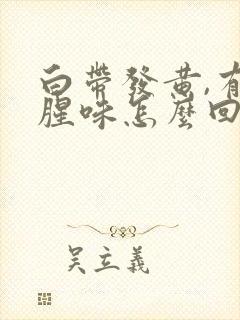 白帶發黄,有
腥味怎麽回
吴立義